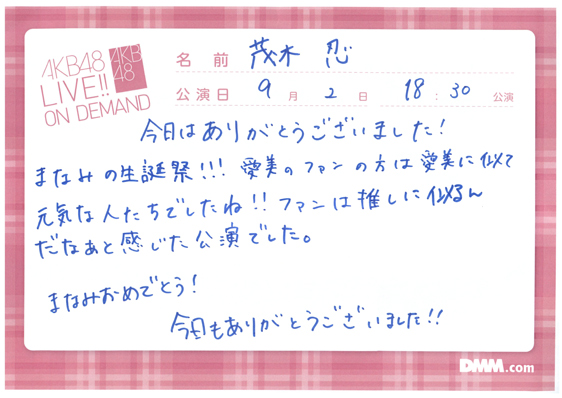 AKB48
LIVE!!
ON DEMAND
AKB
48
名前 茂木 忍
公演日 9月2日 18:30公演
今日はありがとうございました!
まなみの生誕祭!!! 愛美のファンの方は愛美に似て
元気な人たちでしたね!! ファンは推しに似るん
だなぁと感じた公演でした。
まなみおめでとう!
今日もありがとうございました!!
DMM.com